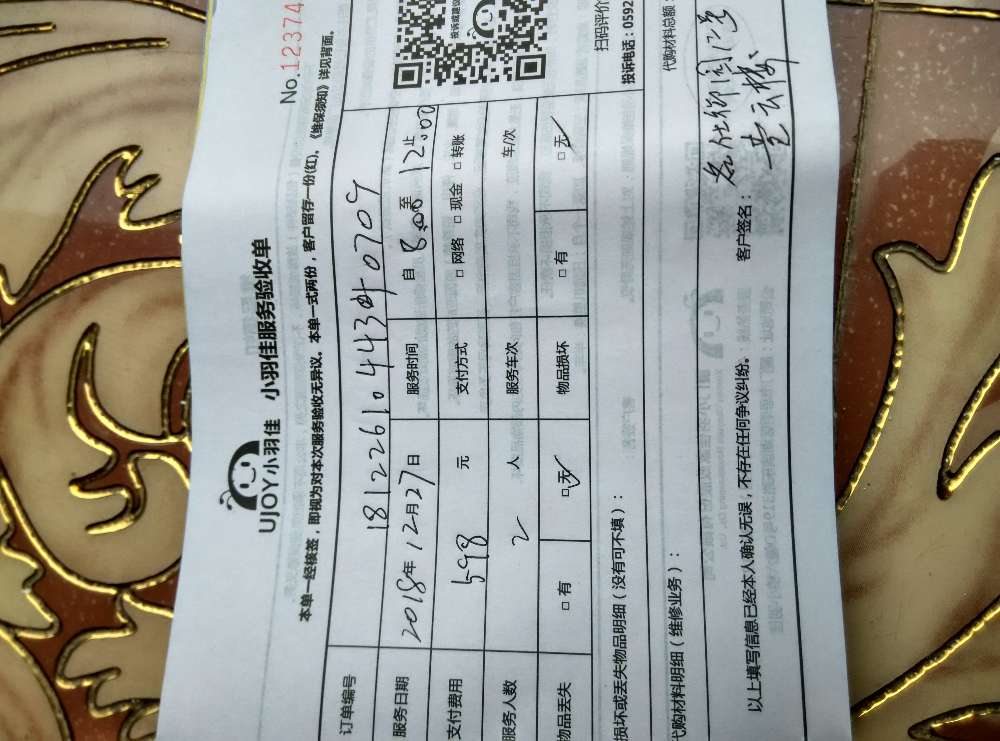 UJOY小羽佳 小羽佳服务验收单
No.12374
本单一经核签，即视为对本次服务验收无异议。本单一式两份，客户留存一份(红)。《维保须知》详见背面。
订单编号 18122610443
服务日期 2018年12月27日 服务时间 自 8:00 至 12:00 止
支付费用 598 元 支付方式 □ 网络 □ 现金 □ 转账
服务人数 2 人 服务车次 车/次
物品丢失 □ 有 □ 无 物品损坏 □ 有 □ 无
损坏或丢失物品明细（没有可不填）：
投诉或建议
扫码评价
投诉电话：0592
代购材料明细（维修业务）：
代购材料总额：
以上填写信息已经本人确认无误，不存在任何争议纠纷。 客户签名：